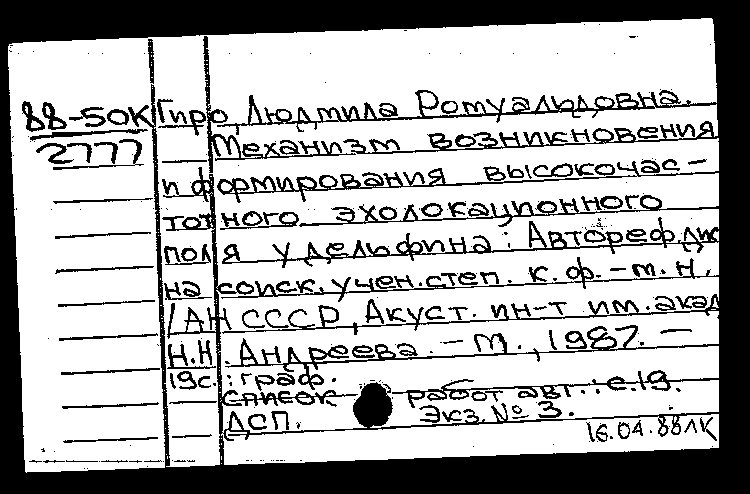 88-50К Гиро, Людмила Ромуальдовна.
2777 Механизм возникновения
и формирования высокочас-
тотного эхолокационного
поля у дельфина: Автореф. дис
на соиск. учен. степ. к. ф. - м. н.
/АН СССР, Акуст. ин-т им. акад
Н.Н. Андреева. - М., 1987. -
19с.: граф.
Список работ авт.: с.19.
ДСП. Экз. № 3.
16.04.88ЛК